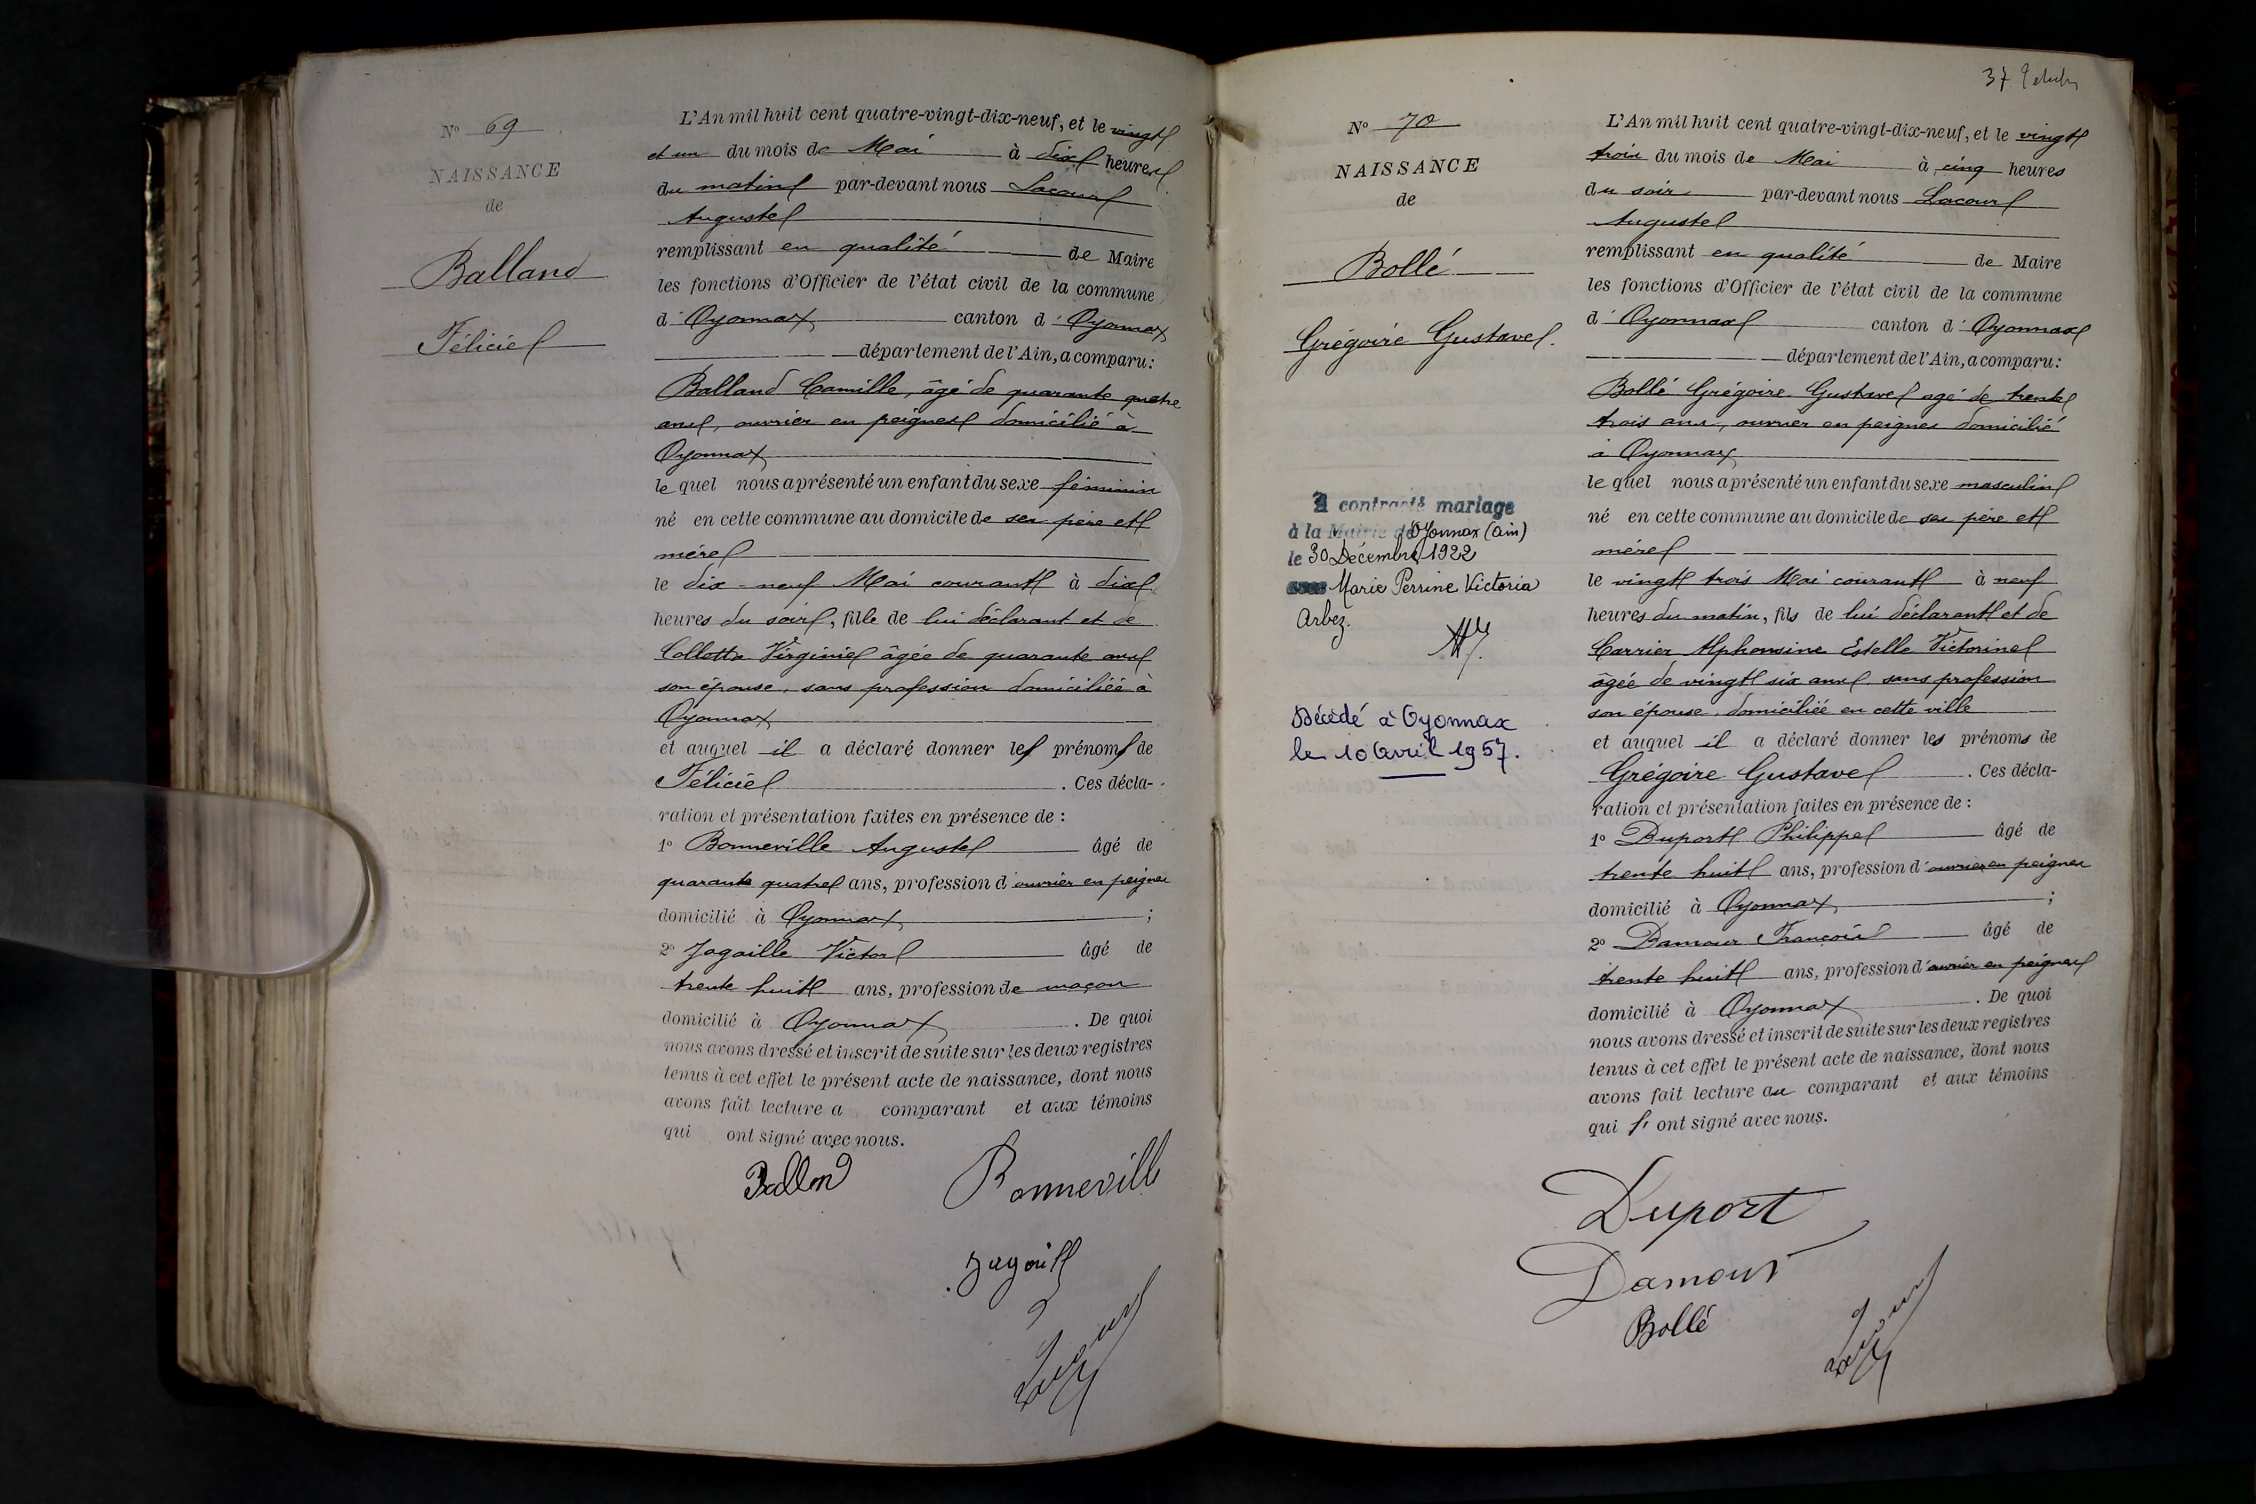 N° 69
NAISSANCE
de
Balland
Félicie
L'An mil huit cent quatre-vingt-dix-neuf, et le vingt
et un du mois de Mai à dix heures
du matin par-devant nous Lacour
Auguste
remplissant en qualité de Maire
les fonctions d'Officier de l'état civil de la commune
d'Oyonnax canton d'Oyonnax
département de l'Ain, a comparu:
Balland Camille, âgé de quarante quatre
ans, ouvrier en peignes domicilié à
Oyonnax
le quel nous a présenté un enfant du sexe féminin
né en cette commune au domicile de ses père et
mère
le dix-neuf Mai courant à dix
heures du soir, fille de lui déclarant et de
Collotta Virginie âgée de quarante ans
son épouse, sans profession domiciliée à
Oyonnax
et auquel il a déclaré donner les prénoms de
Félicie . Ces décla-
ration et présentation faites en présence de :
1° Bonneville Auguste âgé de
quarante quatre ans, profession d'ouvrier en peignes
domicilié à Oyonnax ;
2° Jagaille Victor âgé de
trente huit ans, profession de maçon
domicilié à Oyonnax . De quoi
nous avons dressé et inscrit de suite sur les deux registres
tenus à cet effet le présent acte de naissance, dont nous
avons fait lecture a comparant et aux témoins
qui ont signé avec nous.
Balland
Bonneville
37
N° 70
NAISSANCE
de
Bollé
Grégoire Gustave.
A contracté mariage
à la Mairie de Oyonnax (Ain)
le 30 Décembre 1922
avec Marie Perrine Victoria
Arbez.
Décédé à Oyonnax
le 10 avril 1957.
L'An mil huit cent quatre-vingt-dix-neuf, et le vingt
trois du mois de Mai à cinq heures
du soir par-devant nous Lacour
Auguste
remplissant en qualité de Maire
les fonctions d'Officier de l'état civil de la commune
d'Oyonnax canton d'Oyonnax
département de l'Ain, a comparu:
Bollé Grégoire Gustave agé de trente
trois ans, ouvrier en peignes domicilié
à Oyonnax
le quel nous a présenté un enfant du sexe masculin
né en cette commune au domicile de ses père et
mère
le vingt trois Mai courant à neuf
heures du matin, fils de lui déclarant et de
Carrier Alphonsine Estelle Victorine
âgée de vingt six ans sans profession
son épouse, domiciliée en cette ville
et auquel il a déclaré donner les prénoms de
Grégoire Gustave . Ces décla-
ration et présentation faites en présence de :
1° Duport Philippe âgé de
trente huit ans, profession d'ouvrier en peignes
domicilié à Oyonnax ;
2° Damour François âgé de
trente huit ans, profession d'ouvrier en peignes
domicilié à Oyonnax . De quoi
nous avons dressé et inscrit de suite sur les deux registres
tenus à cet effet le présent acte de naissance, dont nous
avons fait lecture au comparant et aux témoins
qui ont signé avec nous.
Duport
Damour
Bollé